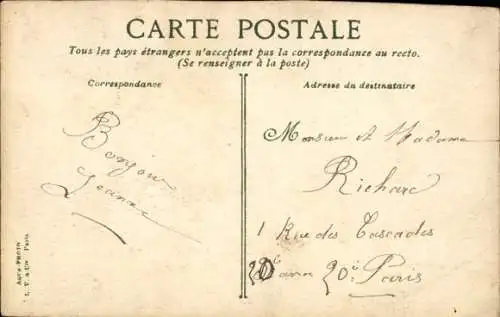 CARTE POSTALE
Tous les pays étrangers n'acceptent pas la correspondance au recto.
(Se renseigner à la poste)
Correspondance
Bonjour
Jeanne
Adresse du destinataire
Monsieur et Madame
Richard
1 Rue des Cascades
20e Paris
AQUA-PHOTO
L. V. & Cie Paris